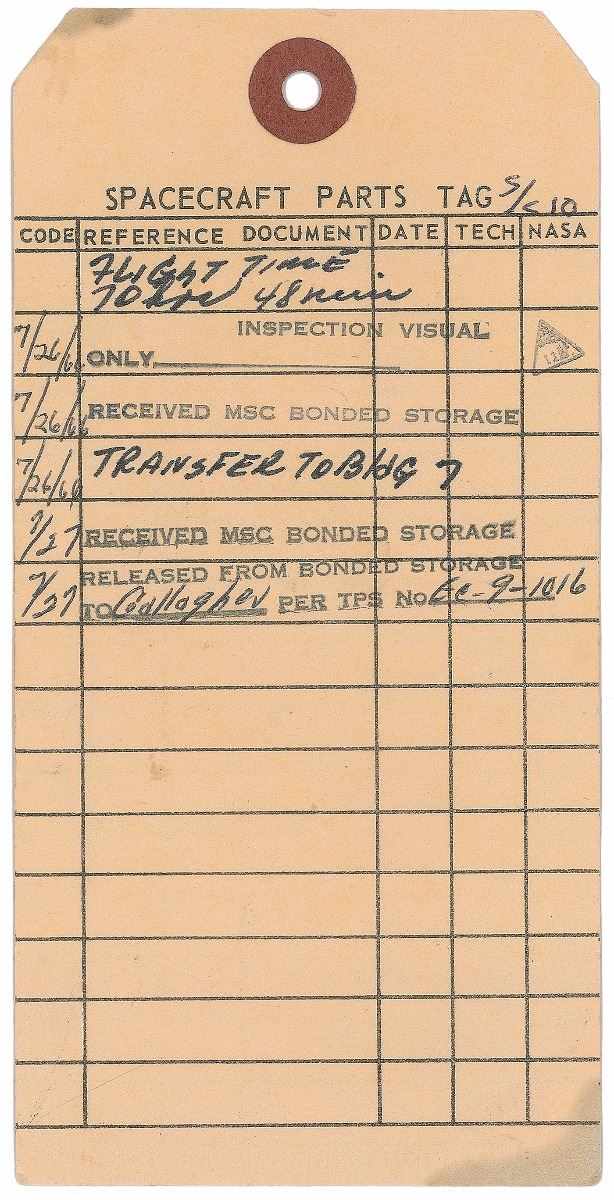 SPACECRAFT PARTS TAG S/C 10
CODE REFERENCE DOCUMENT DATE TECH NASA
FLIGHT TIME
70 hrs 48 min
7/26/66 INSPECTION VISUAL
ONLY
7/26/66 RECEIVED MSC BONDED STORAGE
7/26/66 TRANSFER TO BldG 7
7/27 RECEIVED MSC BONDED STORAGE
7/27 RELEASED FROM BONDED STORAGE
TO PER TPS No Ec-9-1016